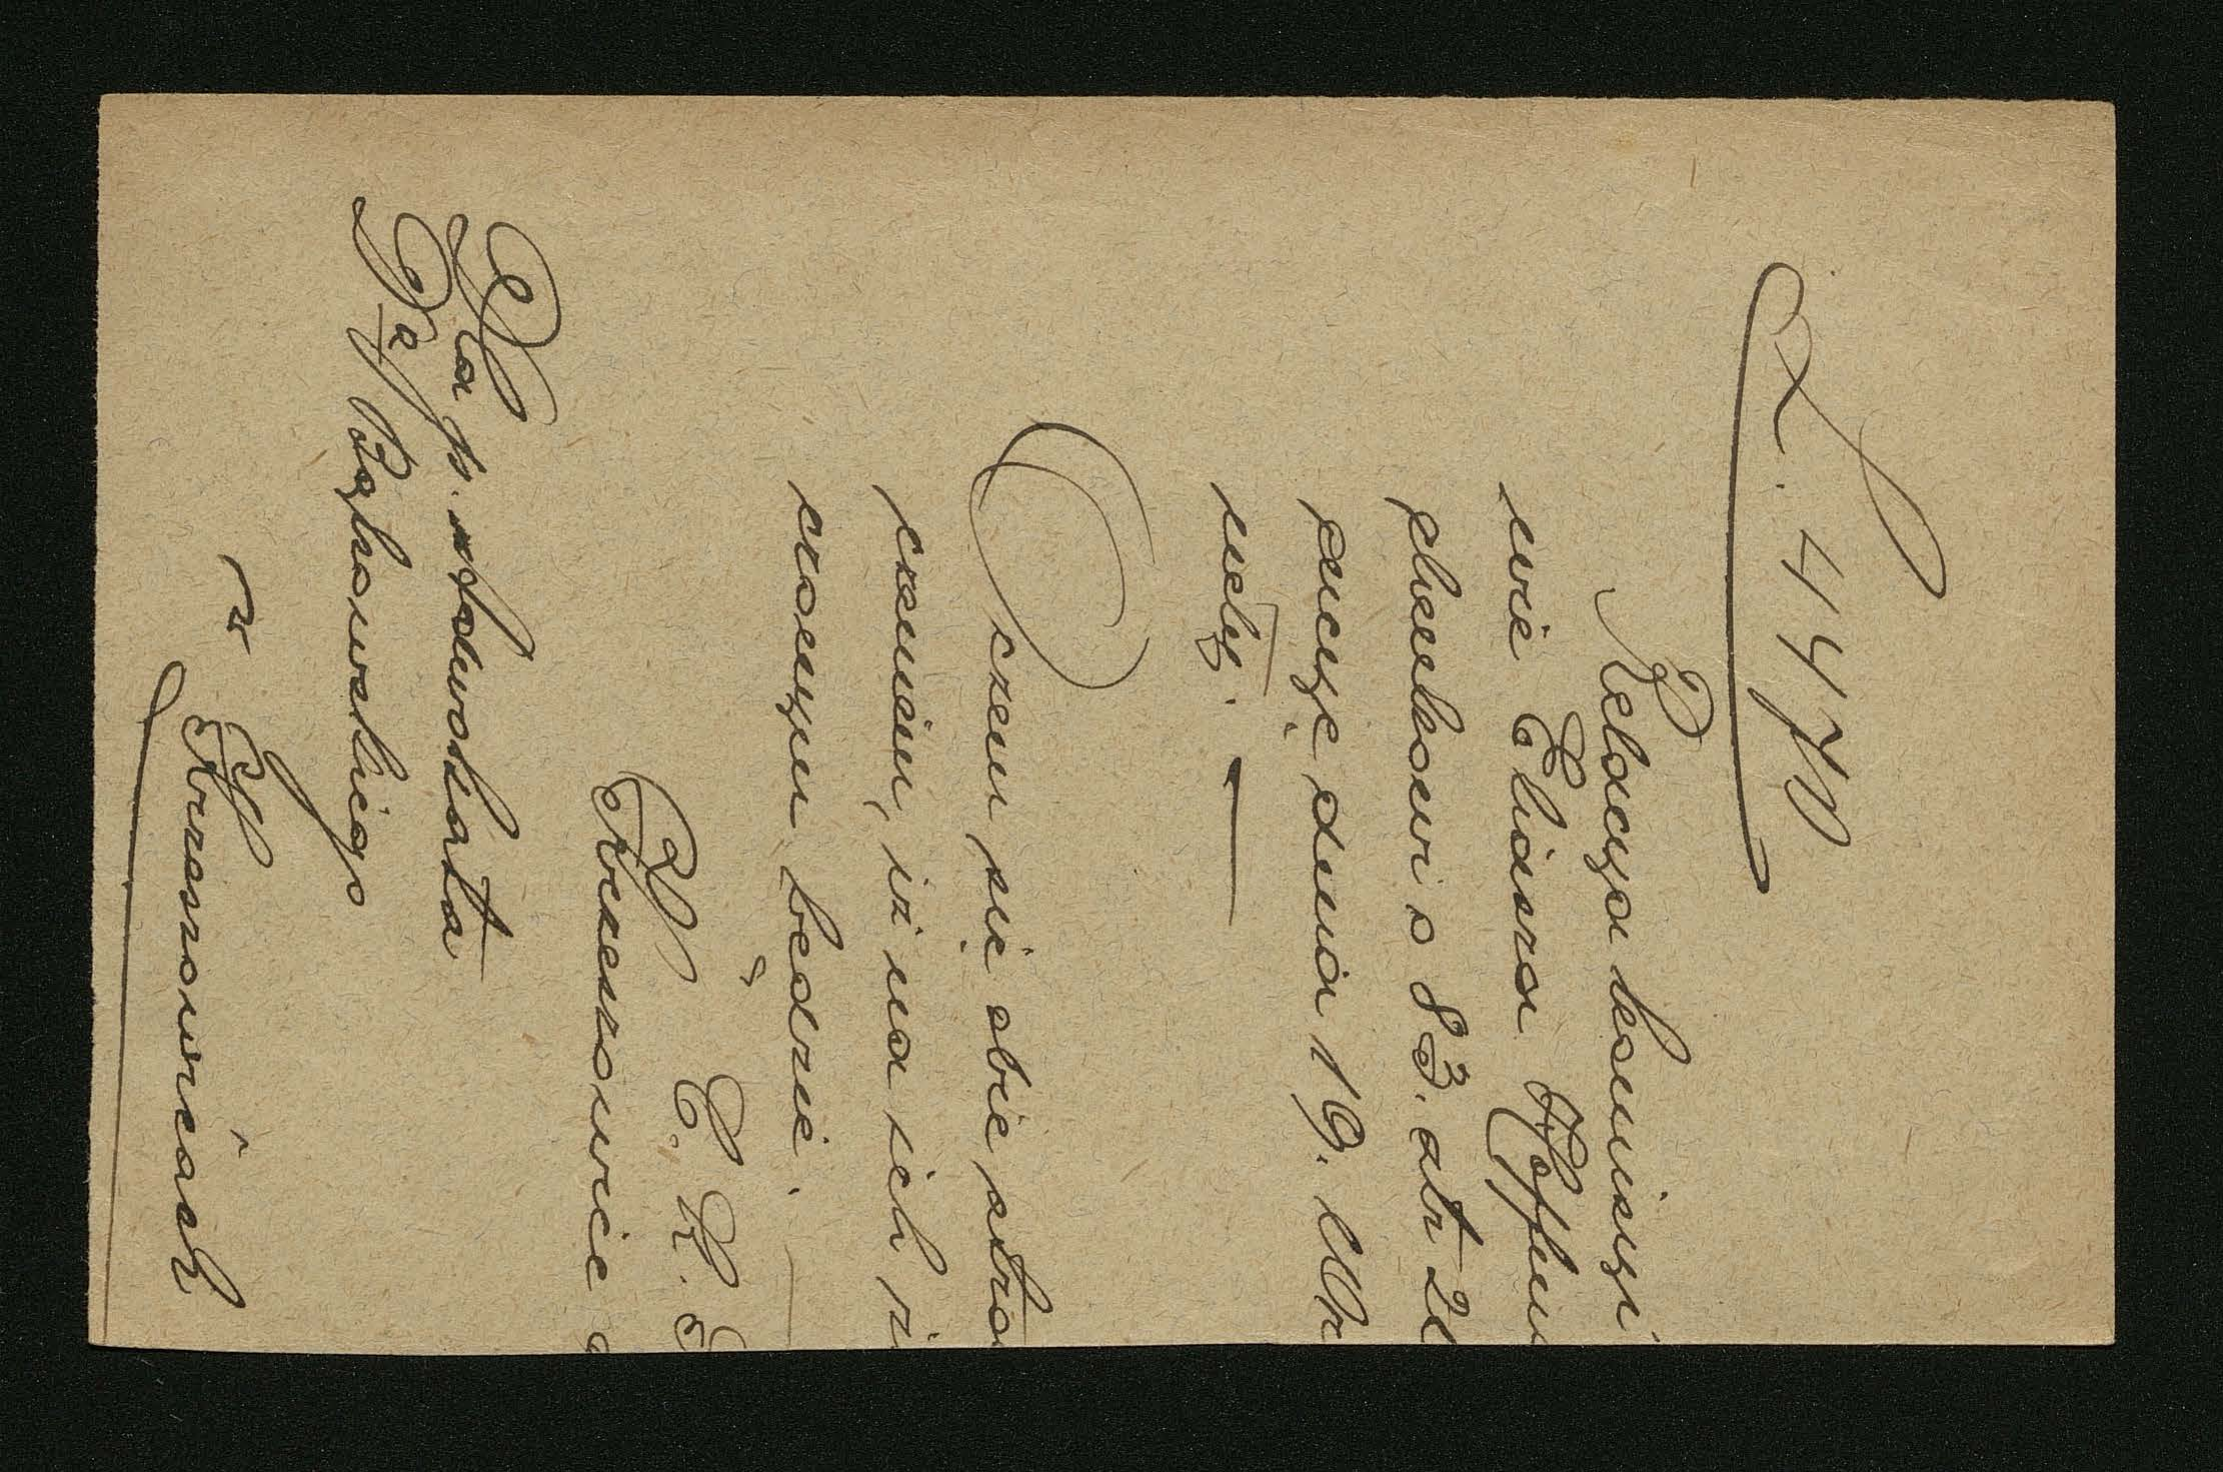 L. 4470
Relacya komisyi
wie Eliasza Hoffm
slamkowi o 83. złr 20
encyę dnia 19. Mar
nety. —
O czem się obie stro
czeniem, iż na ich
czonym będzie.
C. K. S
Krzeszowice d
Dla p. adwokata
Dra Bąkowskiego
w Krzeszowicach